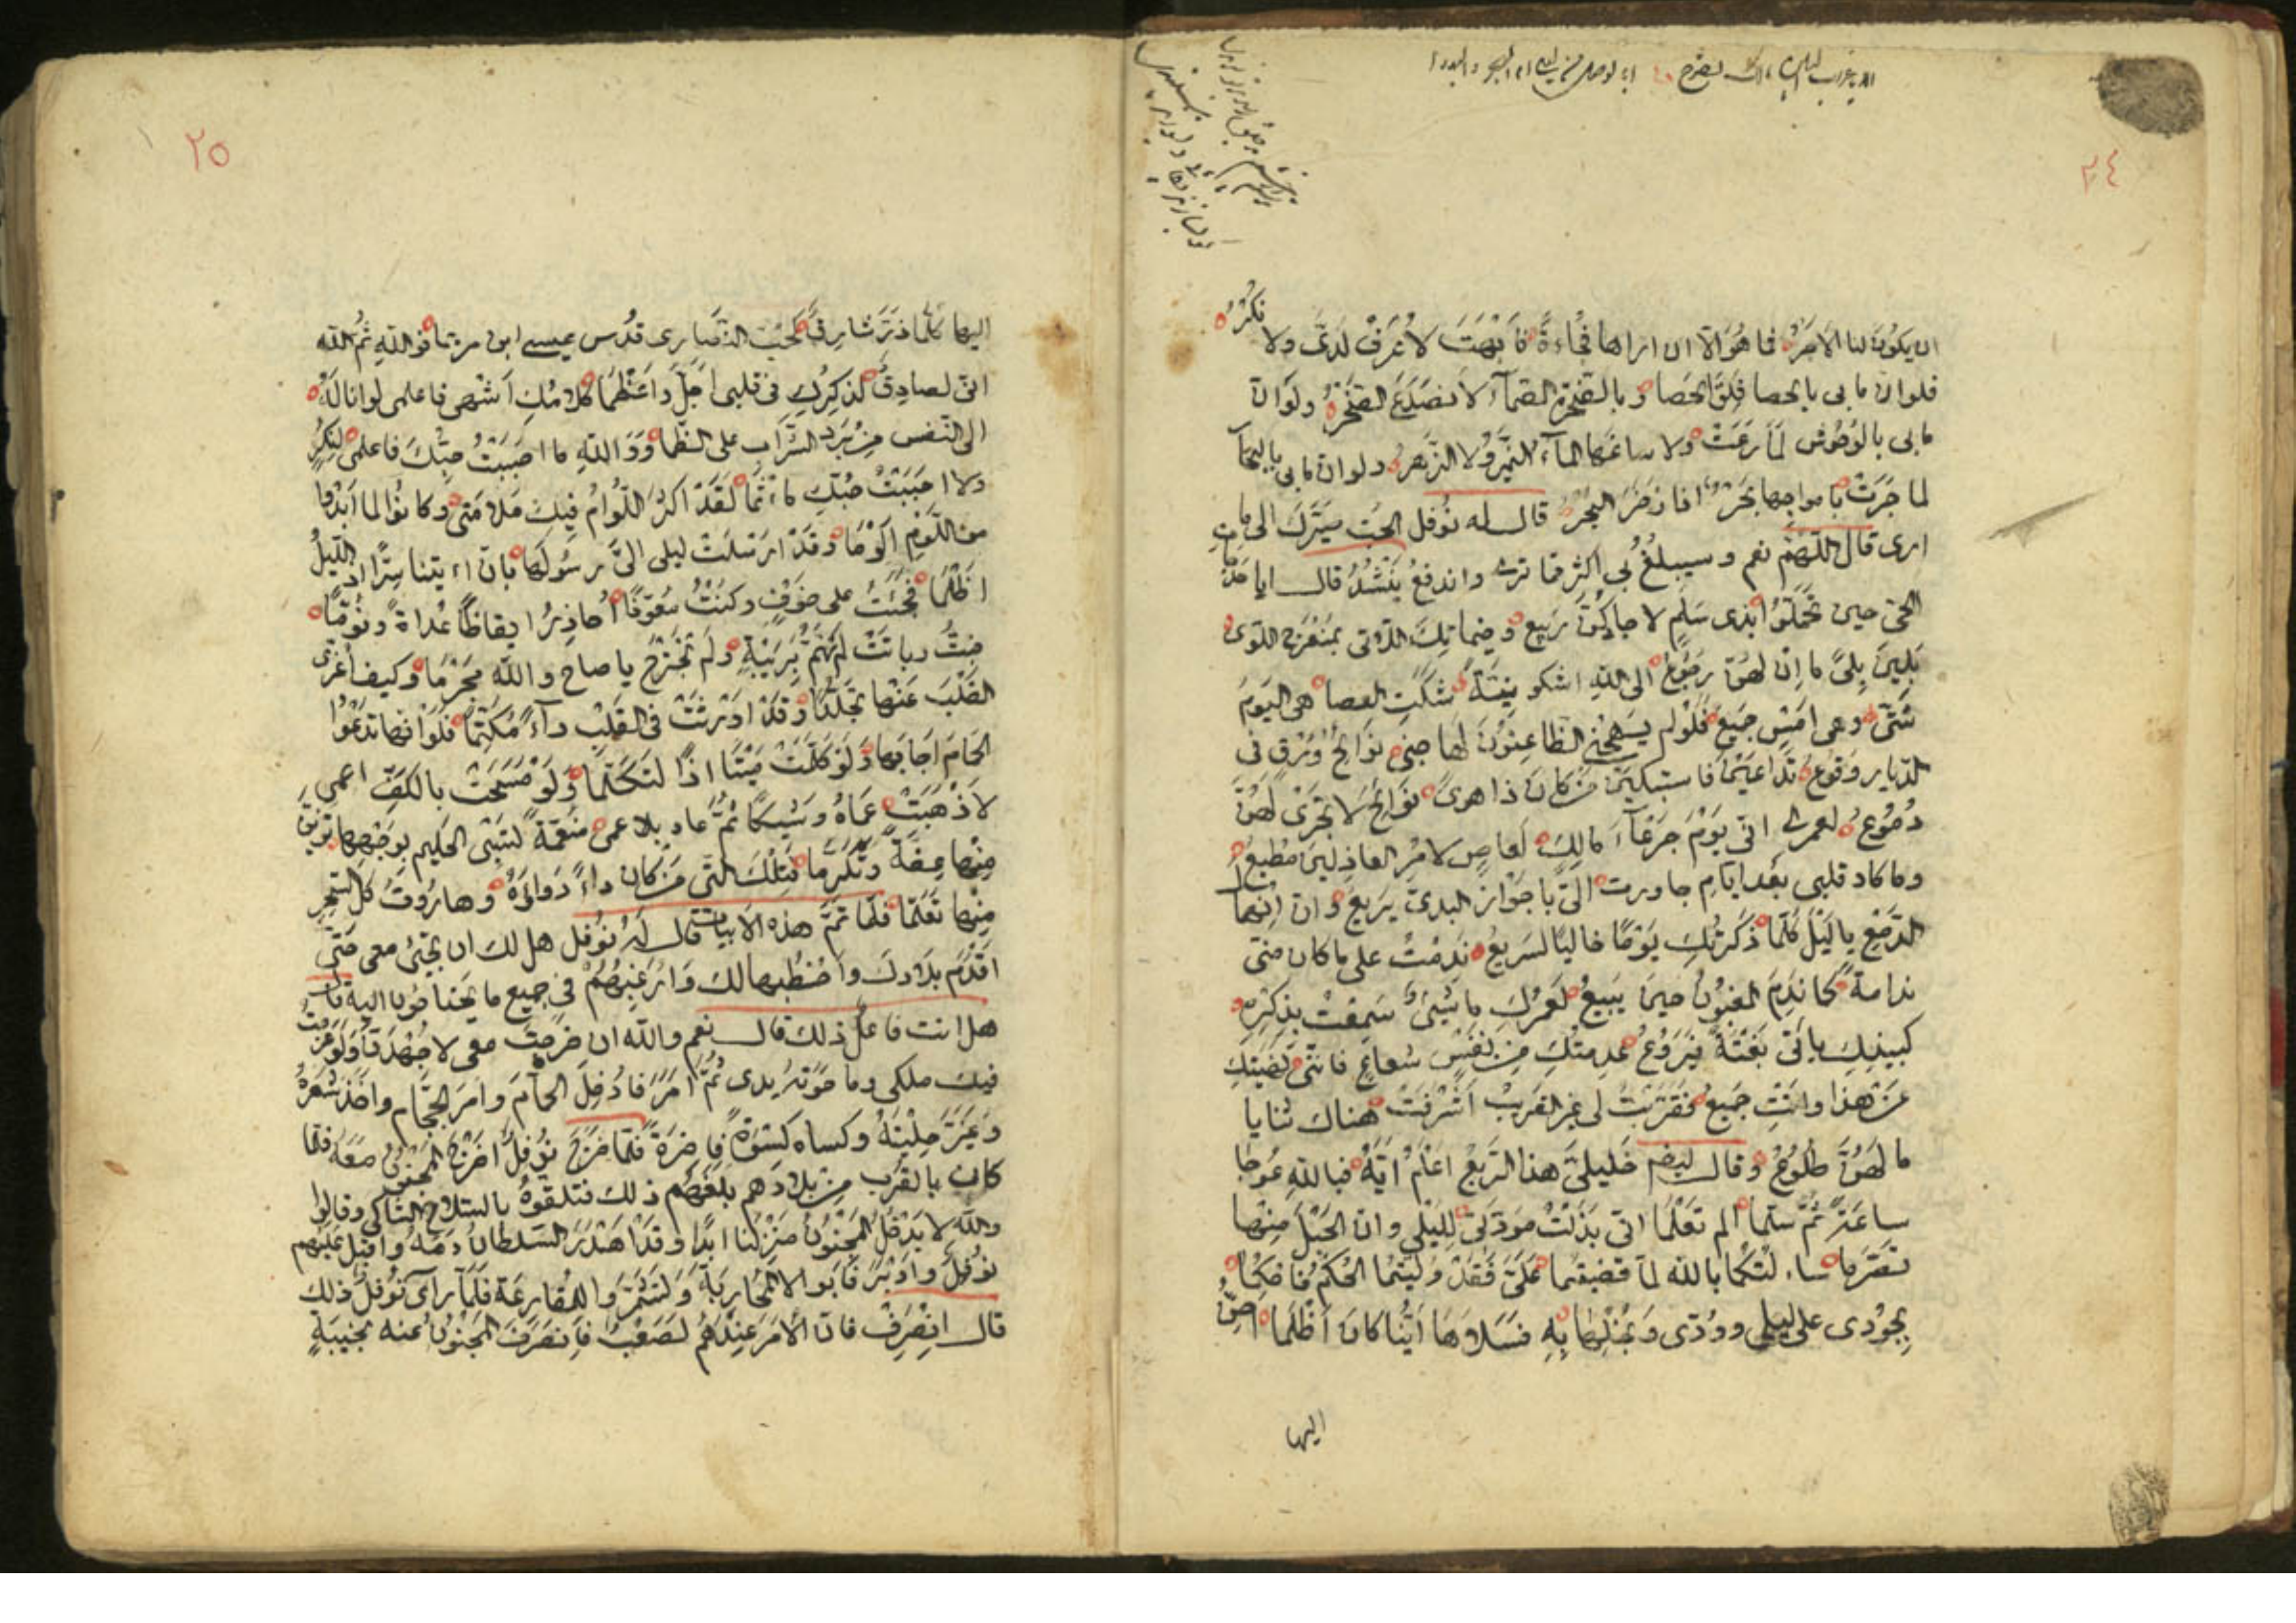 ٢٤
ان يكون لنا الامر فما هو الا ان اراها فجاءة فابهت لا عرف لدي ولا نكر
فلوان ما بي بالحصا فلق الحصا وبالصخرة الصماء لانصدع الصخر ولو ان
ما بي بالوحوش لما رعت ولا ساغها الماء النمير ولا الزهر ولو ان ما بي بالبحار
لما جرت بامواجها بحر اذا زخر البحر قال له نوفل الحب صيرك الى ما
ارى قال اللهم نعم وسيبلغ بي اكثر مما ترى واندفع ينشد قال ايا حرجات
الحي حين تحملوا بذي سلم لا جادكن ربيع وخيماتك اللاتي بمنعرج اللوى
بلين بلى ما ان لهن رجوع الى الله اشكو نية شكت العصا هي اليوم
شتى وهي امس جميع فلو لم يهجني الظاعنون لهاجني نوائح ورق في
الديار وقوع تداعين فاستبكين من كان ذا هوى نوائح لا تجري لهن
دموع لعمرك اني يوم جرعاء مالك لعاص لامر العاذلين مطيع
وما كاد قلبي بعد ايام جاورت الي باجواز البدي يريع وان انهمال
الدمع يا ليل كلما ذكرتك يوما خاليا لسريع ندمت على ما كان مني
ندامة كما ندم المغبون حين يبيع لعمرك ما شيء سمعت بذكره
كبينك ياتي بغتة فيروع عدمتك من نفس شعاع فانني نهيتك
عن هذا وانت جميع فقربت لي غير القريب اشرفت هناك ثنايا
ما لهن طلوع وقال ايضا خليلي هذا الربع اعلم ايه فبالله عوجا
ساعة ثم سلما الم تعلما اني بذلت مودتي لليلى وان الحبل منها
تصرما سالتكما بالله لما قضيتما علي فقد وليتما الحكم فاحكما
بجودي على ليلى وودي وبخلها به فسلاها اينا كان اظلما احن
اليها
٢٥
اليها كلما ذر شارق كحب النصارى قدس عيسى ابن مريما فوالله ثم الله
اني لصادق لذكرك في قلبي اجل واعظما كلامك اشهى فاعلمي لو اناله
الى النفس من برد الشراب على الظما ووالله ما احببت حبك فاعلمي لنكر
ولا احببت حبك ماثما لقد اكثر اللوام فيك ملامتي وكانوا لما ابدوا
من اللوم الوما وقد ارسلت ليلى الي رسولها بان اءيتنا سرا اذا الليل
اظلما فجئت على خوف وكنت معوذا احاذر ايقاظا عداة ونوما
فبت وباتت لم نهم بريبة ولم نجترح يا صاح والله محرما وكيف اعزي
القلب عنها تجلدا وقد اورثت في القلب داء مكتما فلو انها تدعوا
الحمام اجابها ولو كلمت ميتا اذا لتكلما ولو مسحت بالكف اعمى
لاذهبت عماه وشيكا ثم عاد بلا عمى منعمة تسبي الحليم بوجهها تزين
منها عفة وتكرما فتلك التي من كان داء دواؤه وهاروت كل السحر
منها تعلما فلما تم هذه الابيات قال له نوفل هل لك ان تجئ معي حتى
اقدم بلادك واخطبها لك وارغبهم في جميع ما يحتاجون اليه قال
هل انت فاعل ذلك قال نعم والله ان خرجت معي لاجهدن ولو غرمت
فيك ملكي وما حوته يدي ثم امر فادخل الحمام وامر الحجام واخذ شعره
وغير حليته وكساه كسوة فاخرة فلما خرج نوفل اخرج المجنون معه فلما
كان بالقرب من بلادهم بلغهم ذلك فتلقوه بالسلاح الشاكي وقالوا
والله لا يدخل المجنون منزلنا ابدا وقد اهدر السلطان دمه واقبل عليهم
نوفل وادبر فابوا الا المحاربة ولشمر والمقارعة فلما راى نوفل ذلك
قال انصرف فان الامر عندهم لصعب فانصرف المجنون عنه بخيبة